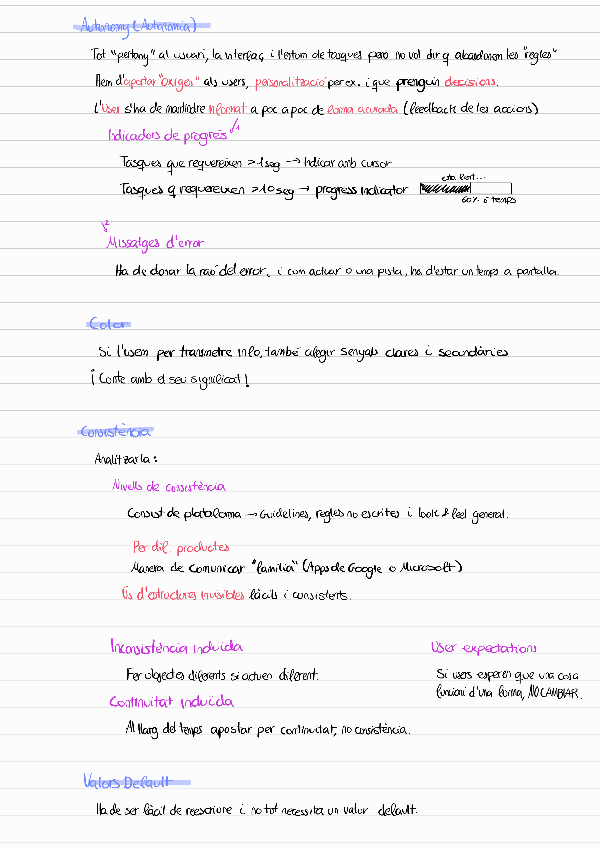 Autonomy (Autonomia)
Tot "pertany" al usuari, la interfaç i l'entorn de tasques pero no vol dir q abandonem les "regles"
Hem d'aportar "oxigen" als users, personalització per ex. i que prenguin decisions.
L'User s'ha de mantindre informat a poc a poc de forma acurada (feedback de les accions)
Indicadors de progrés
Tasques que requereixen >1 seg → Indicar amb cursor
Tasques q requereixen >10 seg → progress indicator
60% temps
Missatges d'error
Ha de donar la raó del error, i com actuar o una pista, ha d'estar un temps a pantalla.
Color
Si l'usem per transmetre info, també afegir senyals clares i secundàries
¡Conte amb el seu significat!
Consistència
Analitzarla:
Nivells de consistència
Consist de plataforma → Guidelines, regles no escrites i look & feel general.
Per dif. productes
Manera de comunicar "familia" (Apps de Google o Microsoft)
Ús d'estructures invisibles fàcils i consistents.
Inconsistència induida
Fer objectes diferents si actuen diferent.
User expectations
Si users esperen que una cosa
funcioni d'una forma, NO CAMBIAR.
Continuitat induida
Al llarg del temps apostar per continuitat, no consistència.
Valors Default
Ha de ser fàcil de reescriure i no tot necessita un valor default.